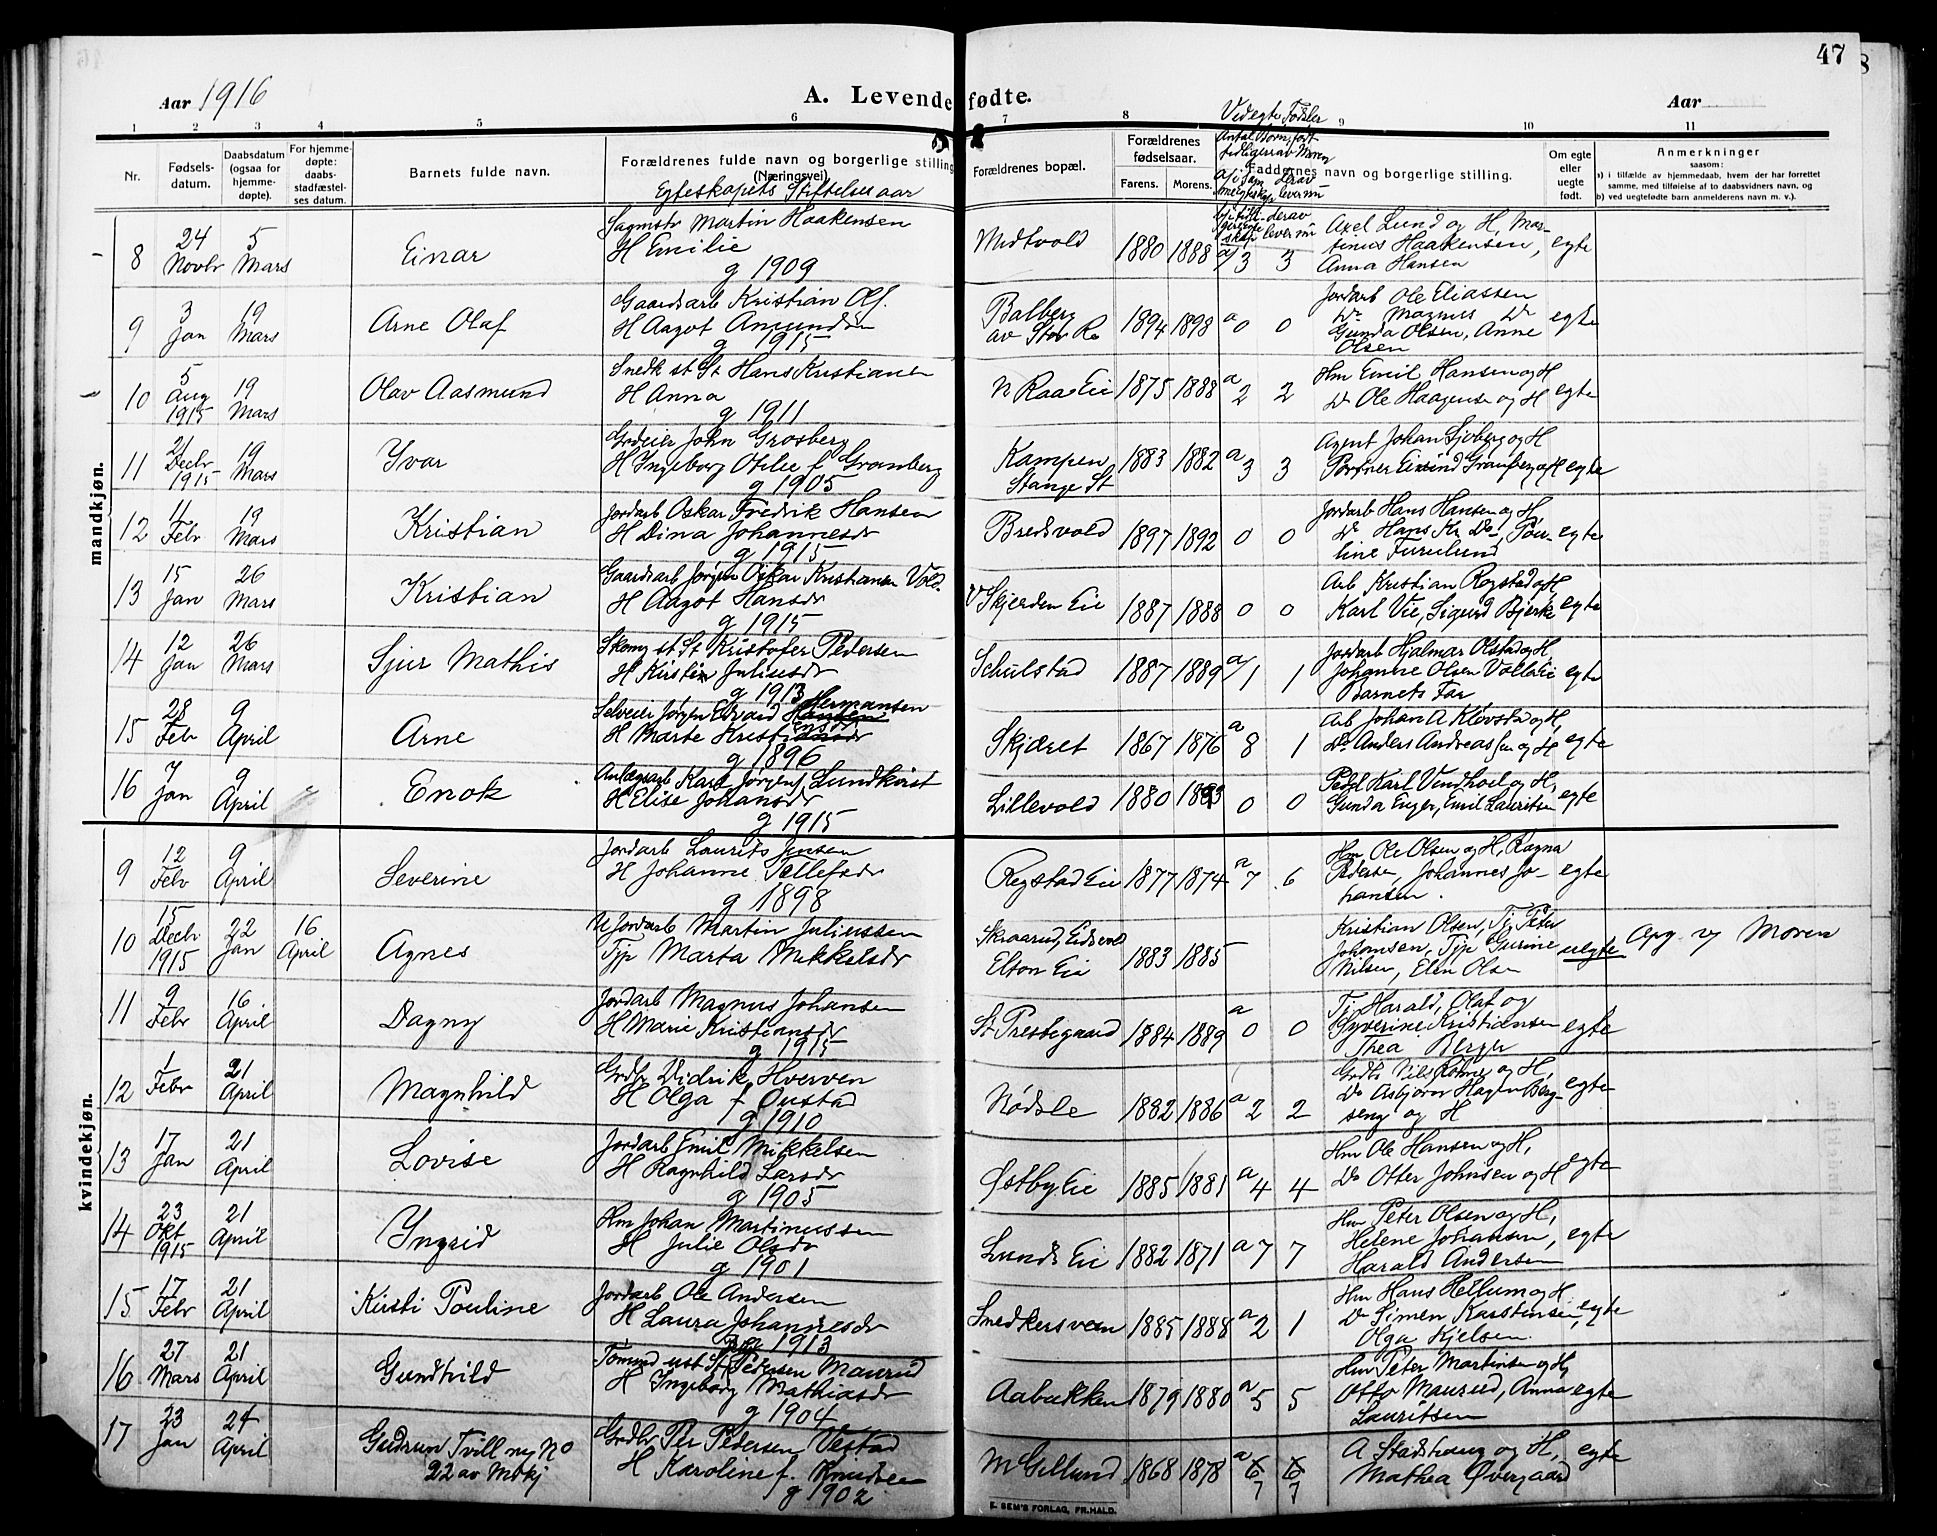 47
Aar 1916
A. Levendefødte.
Aar
1 2 3 4 5 6 7 8 9 10 11
Nr.
Fødsels-
datum.
Daabsdatum
(ogsaa for
hjemme-
døpte).
For hjemme-
døpte:
daabs-
stadfæstel-
ses datum.
Barnets fulde navn.
Forældrenes fulde navn og borgerlige stilling
(Næringsvei).
Egteskapets Stiftelses aar
Forældrenes bopæl.
Forældrenes
fødselsaar.
Farens. Morens.
Ved egte Fødsler
Antal Børn født
tidligere av Moren
Faddernes navn og borgerlige stilling.
Om egte
eller
uegte
født.
Anmerkninger
saasom:
a) i tilfælde av hjemmedaab, hvem der har forrettet
samme, med tilføielse af to daabsvidners navn, og
b) ved uegtefødte barn anmelderens navn m. v.).
mandkjøn.
8 24 Novbr 5 Mars Einar
Sagmstr Martin Haakensen
H Emilie
g 1909
Midtvold 1880 1888 a/3 3
Axel Lund og H, Mar-
tinus Haakensen,
Anna Hansen
egte
9 3 Jan 19 Mars Arne Olaf
Gaardsarb Kristian Olf.
H Aagot Amundsen
g 1915
Balberg
av Stor Re
1894 1898 a 0 0
Jordarb Ole Eliassen
Do Magnus Do
Gunda Olsen, Anne
Olsen
egte
10 5 Aug 1915 19 Mars Olav Aasmund
Snedk st St Hans Kristiansen
H Anna
g 1911
N Raa Eie 1875 1888 a 2 2
Hm Emil Hansen og H
Do Ole Haagensen og H
egte
11 21 Decbr 1915 19 Mars Yvar
Grdeier John Grosberg
H Ingeborg Otilie f Gronberg
g 1905
Kampen
Stange St
1883 1882 a 3 3
Agent Johan Sjøberg og H
Portner Eivind Granberg og H
egte
12 11 Febr 19 Mars Kristian
Jordarb Oskar Fredrik Hansen
H Dina Johannesdr
g 1915
Bredsvold 1897 1892 0 0
Jordarb Hans Hansen og H,
Do Hans Kr. Do, Pou-
line Furulund
egte
13 15 Jan 26 Mars Kristian
Gaardsarb Jørgen Oskar Kristiansen Vold
H Aagot Hansdr
g 1915
V Skjerden Eie 1887 1888 0 0
Arb Kristian Rogstad og H,
Karl Vie, Sigurd Bjerke
egte
14 12 Jan 26 Mars Sjur Mathis
Skom st St Kristofer Pedersen
H Kirstin Juliusdr
g 1913
Schulstad 1887 1889 a/1 1
Jordarb Hjalmar Olstad og H
Johanne Olsen Volla Eie
Barnets Far
egte
15 28 Febr 9 April Arne
Selveier Jørgen Edvard Hansen Hermansen
H Marte Kristiansdr
g 1896
Skjæret 1867 1876 a 8 1
Arb Johan A Kløvstad og H,
Do Anders Andreassen og H
egte
16 7 Jan 9 April Enok
Anlægsarb Karl Jørgens Lundkvist
H Elise Johansdr
g 1915
Lillevold 1880 1893 0 0
Pedl Karl Vendkvel og H,
Gunda Enger, Emil Lauritsen
egte
kvindekjøn.
9 12 Febr 9 April Severine
Jordarb Laurits Jensen
H Johanne Tellefsdr
g 1898
Rogstad Eie 1877 1874 a 7 6
Hm Ole Olsen og H, Ragna
Pedersen, Johannes Jo-
hansen.
egte
10 15 Decbr 1915 22 Jan 16 April Agnes
U Jordarb Martin Juliussen
Tjp Marta Mikkelsdr
Skraarud, Eidsvold
Elton Eie
1883 1885
Kristian Olsen, Tj Peter
Johansen, Tjp Gurine
Nilsen, Elen Olsen
uegte
Opg v Moren
11 9 Febr 16 April Dagny
Jordarb Magnus Johansen
H Marie Kristiansdr
g 1915
St Prestegaard 1884 1889 a 0 0
Tj Harald, Olaf og
Syverine Kristiansen
Thea Berger
egte
12 1 Febr 21 April Magnhild
Grdbr Didrik Hverven
H Olga f Oustad
g 1910
Nødsle 1882 1886 a 2 2
Grdbr Nils Romer og H,
Do Asbjørn Hagen Berg-
seng og H
egte
13 17 Jan 21 April Lovise
Jordarb Emil Mikkelsen
H Ragnhild Larsdr
g 1905
Østby Eie 1885 1881 a 4 4
Hm Ole Hansen og H,
Do Otter Johnsen og H
egte
14 23 Okt 1915 21 April Yngrid
Hm Johan Martinussen
H Julie Olsdr
g 1901
Lunds Eie 1882 1871 a 7 7
Hm Peter Olsen og H,
Helene Johansen,
Harald Andersen
egte
15 17 Febr 21 April Kirsti Pouline
Jordarb Ole Andersen
H Laura Johannesdr
g 1913
Snedkersveen 1885 1888 a 2 1
Hm Hans Hellum og H
Do Simen Karstensen,
Olga Kjelsen
egte
16 27 Mars 21 April Gundhild
Tømmd ust St Pedersen Maurud
H Ingeborg Mathiasdr
g 1904
Aabakken 1879 1880 a 5 5
Hm Peter Martinsen og H,
Otto Maurud, Anna
Lauritsen
egte
17 23 Jan 24 April Gudrun Tvill mg No
22 av Mdkj
Grdbr Per Pedersen Vestad
H Karoline f. Knudsen
g 1902
M Gillund 1868 1878 a 6 6
7 7
A Stadshaug og H,
Mathea Øvergaard
egte
E. SEM'S FORLAG, FR.HALD.